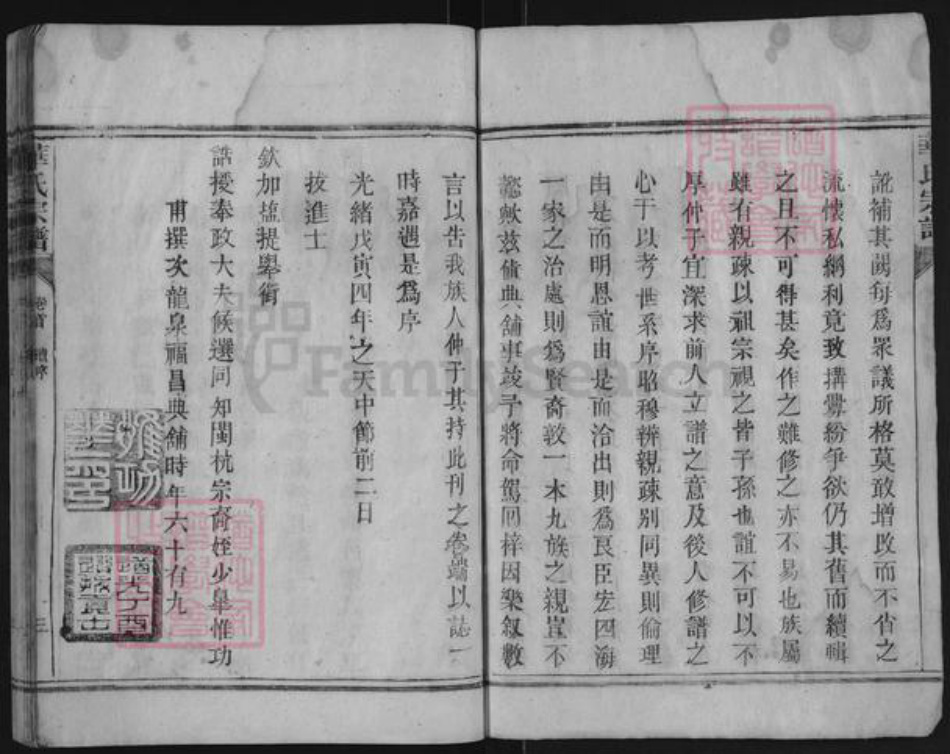 訛補其闕每爲眾議所格莫敢增改而不肖之
流懷私網利竟致搆釁紛爭欲仍其舊而續輯
之且不可得甚矣作之難修之亦不易也族屬
雖有親疎以祖宗視之皆子孫也誼不可以不
厚仲子宜深求前人立譜之意及後人修譜之
心于以考世系序昭穆辨親疎别同異則倫理
由是而明恩誼由是而洽出則爲良臣宏四海
一家之治處則爲賢裔敦一本九族之親豈不
懿歟兹値典舗事竣予將命駕囘梓因樂叙數
言以告我族人仲子其持此刊之卷端以誌一
時嘉遇是爲序
光緒戊寅四年之天中節前二日
拔進士
欽加塩提舉銜
誥授奉政大夫候選同知閩杭宗裔姪少臯惟功
甫撰次龍泉福昌典舖時年六十有九
華氏宗譜
卷首
三
華氏宗譜
惟功
道光丁酉
FamilySearch